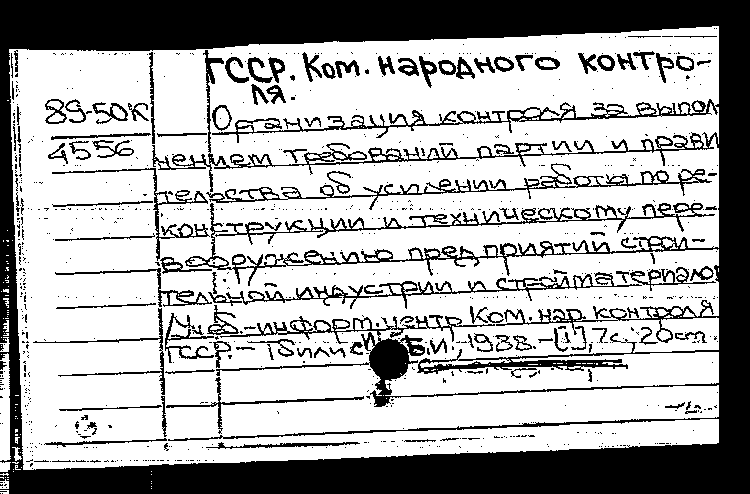 ГССР. Ком. народного контро-
ля.
89-50К
4556
Организация контроля за выпол
нением требований партии и прави
тельства об усилении работы по ре-
конструкции и техническому пере-
вооружению предприятий строи-
тельной индустрии и стройматериалов
/Учеб.-информ. центр Ком. нар. контроля
ГССР.- Тбилиси Б.и., 1988.-[1], 7с.; 20см.